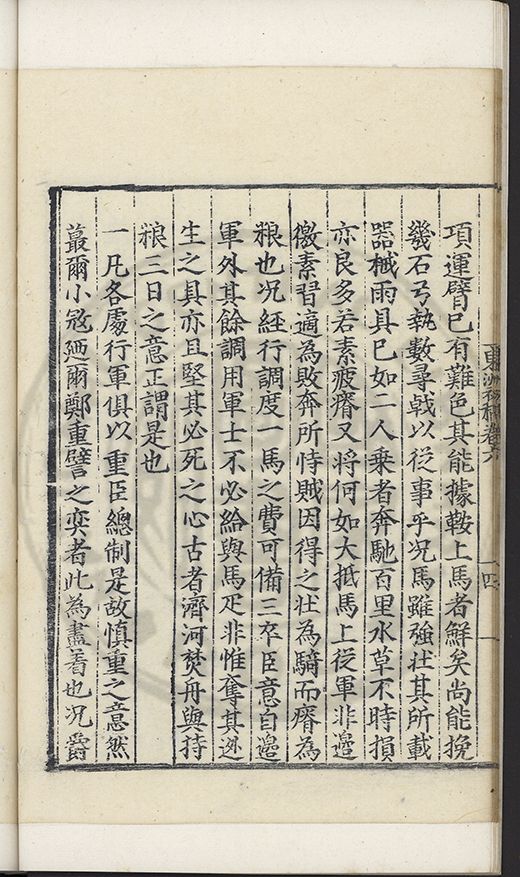 項運臂已有難色其能據鞍上馬者鮮矣尚能挽
幾石弓執數尋戟以從事乎况馬雖強壯其所載
器械雨具已如二人乘者奔馳百里水草不時損
亦良多若素疲瘠又將何如大抵馬上從軍非邉
徼素習適為敗奔所恃賊因得之壮為騎而瘠為
粮也况經行調度一馬之費可備三卒臣意自邉
軍外其餘調用軍士不必給與馬疋非惟奪其迯
生之具亦且堅其必死之心古者濟河焚舟與持
粮三日之意正謂是也
一凡各處行軍俱以重臣總制是故慎重之意然
蕞爾小宼廼爾鄭重譬之奕者此為盡着也况爵
東洲初稿卷六
十四